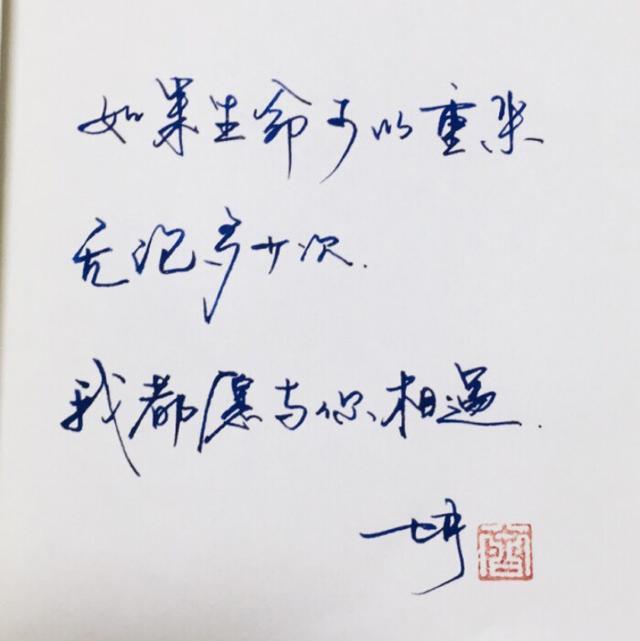 如果生命可以重来
无论多少次.
我都愿与你相遇.